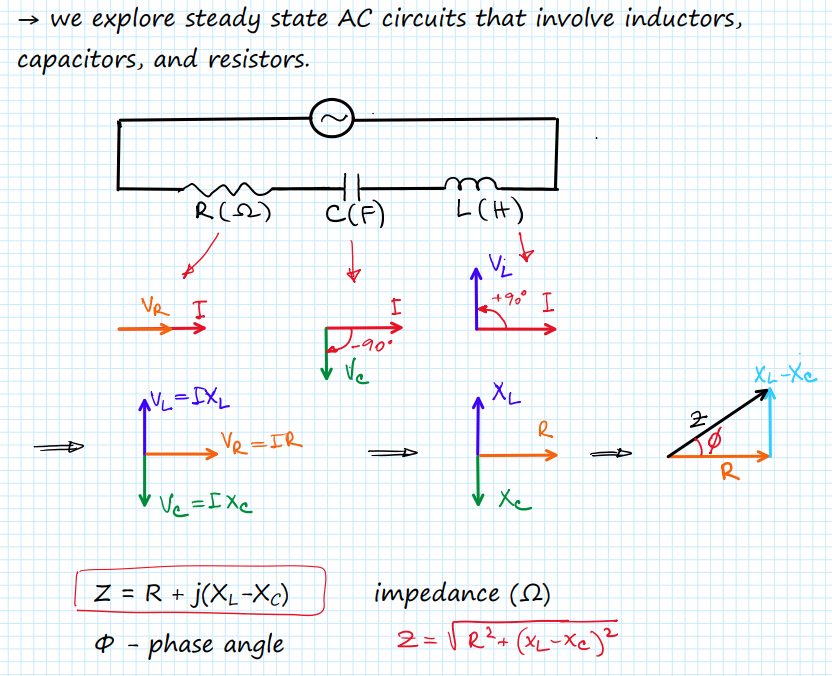 → we explore steady state AC circuits that involve inductors,
capacitors, and resistors.
R(Ω) C(F) L(H)
V_R I
I
-90°
V_C
V_L
+90° I
V_L=IX_L
V_R=IR
V_C=IX_C
X_L
R
X_C
X_L-X_C
Z
ϕ
R
Z = R + j(X_L-X_C) impedance (Ω)
Φ - phase angle Z=√R²+(X_L-X_C)²